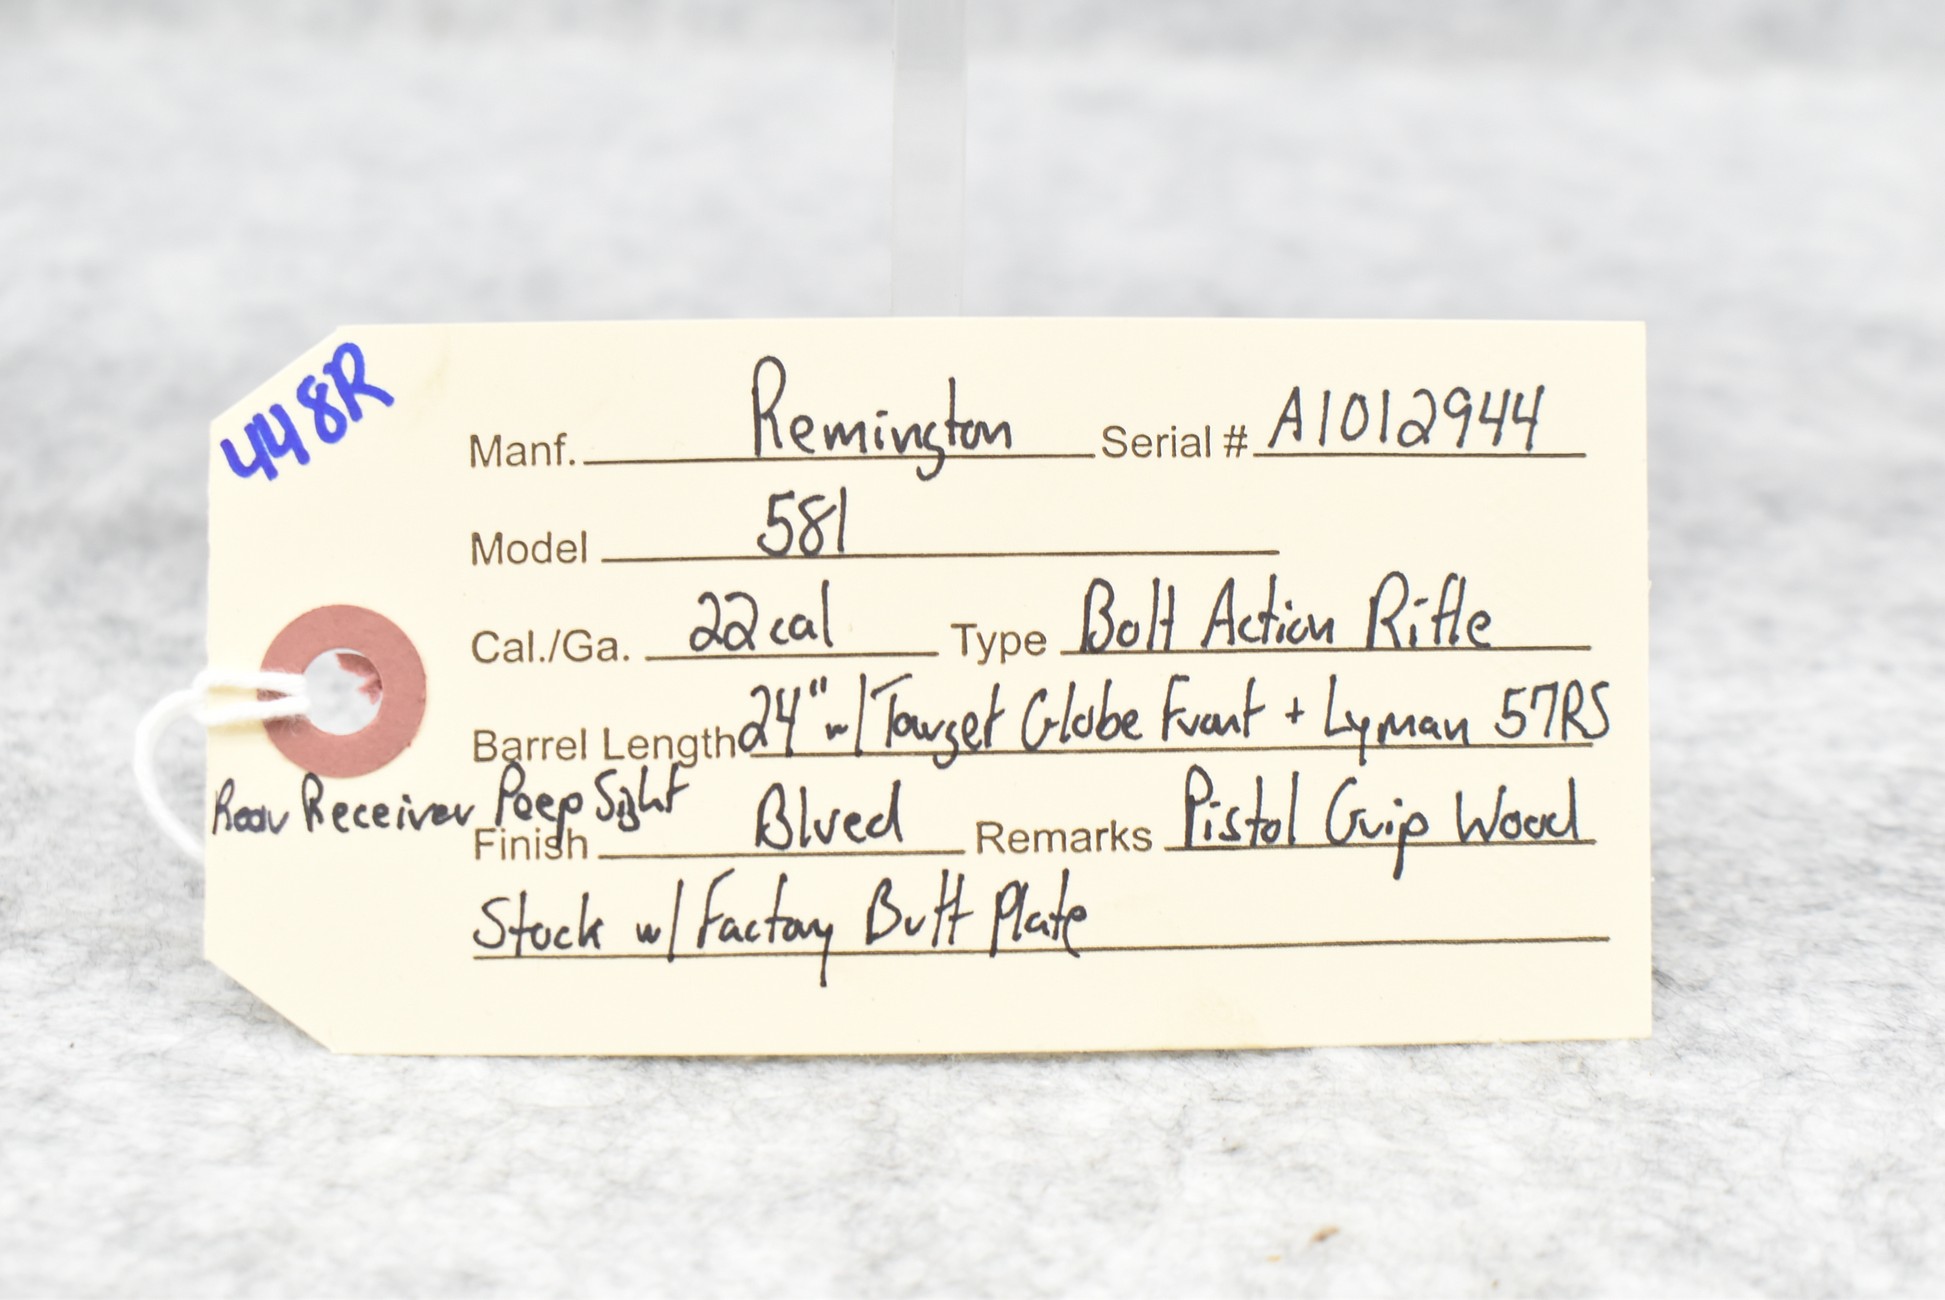 448R
Manf. Remington Serial # A1012944
Model 581
Cal./Ga. 22cal Type Bolt Action Rifle
Barrel Length 24" w/ Target Globe Front + Lyman 57RS
Rear Receiver Peep Sight
Finish Blued Remarks Pistol Grip Wood
Stock w/ Factory Butt Plate